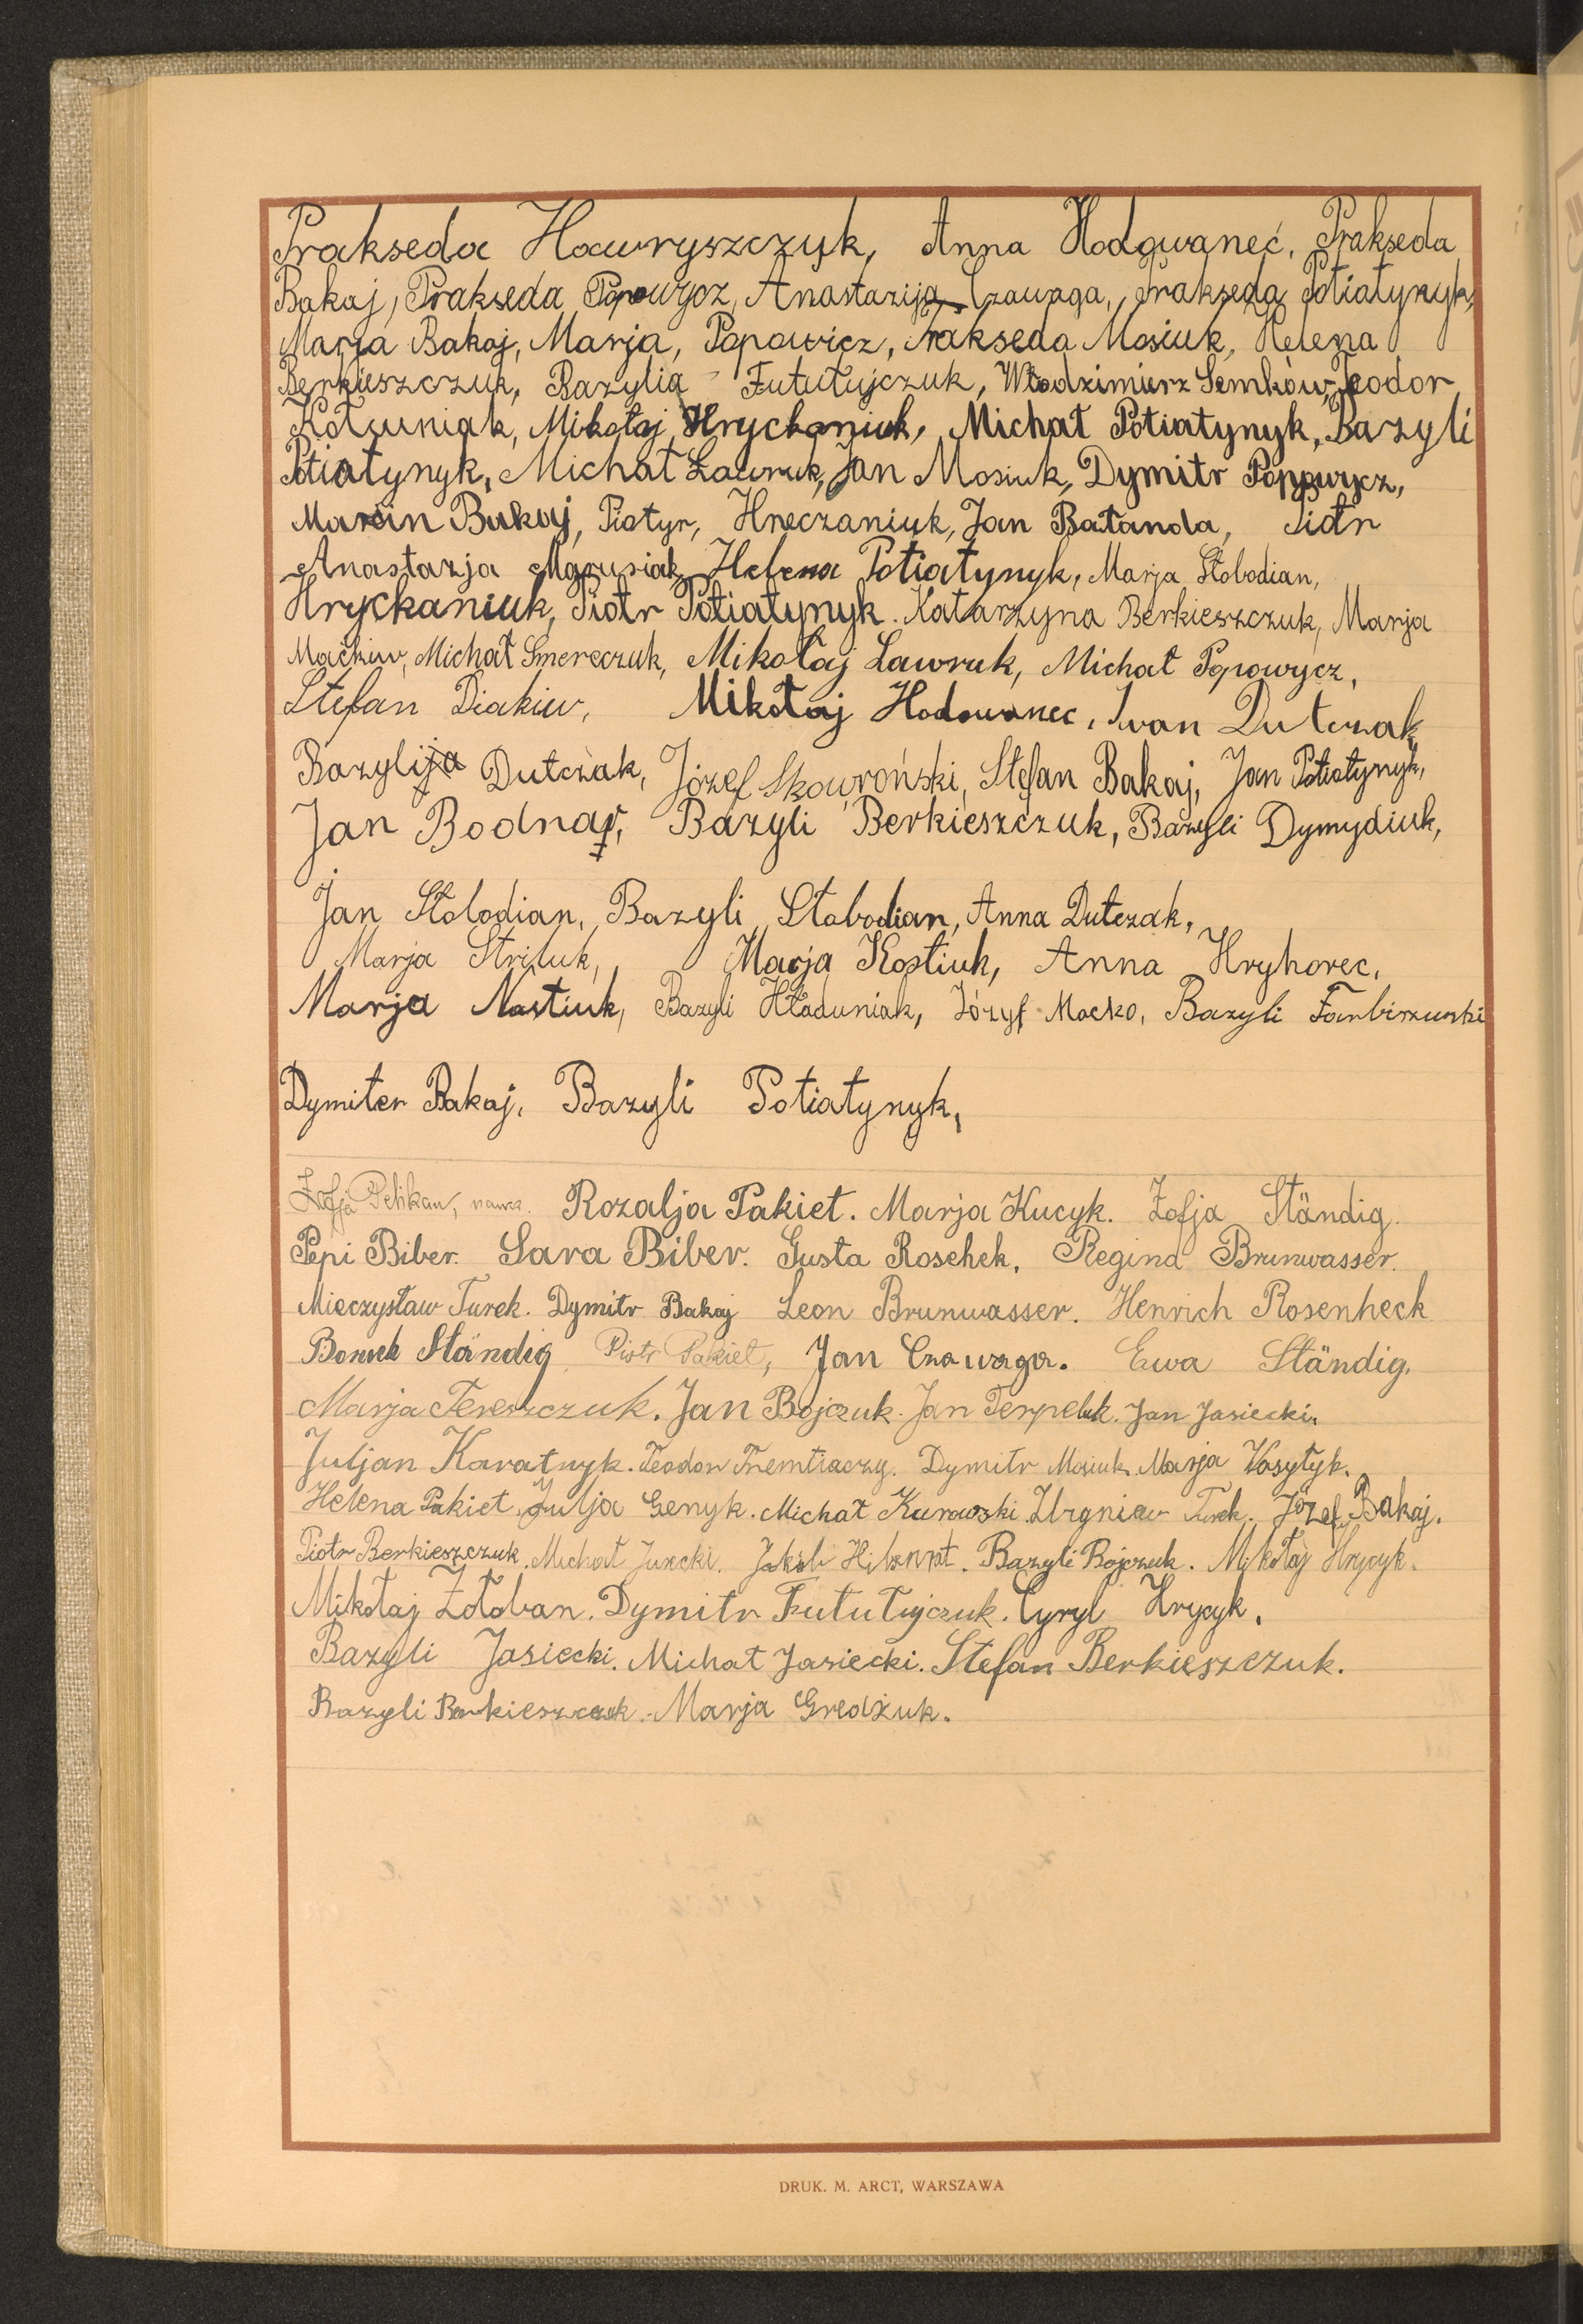 Prakseda Hawryszczyk, Anna Hodowaneć, Prakseda
Bakaj, Prakseda Popowycz, Anastazija Czawaga, Prakseda Potiatynyk,
Marja Bakaj, Marja, Popowicz, Prakseda Mosiuk, Helena
Berkieszczuk, Bazylia Fututujczuk, Włodzimierz Semków, Teodor
Kotuniak, Mikołaj Hryckaniuk, Michał Potiatynyk, Bazyli
Potiatynyk, Michał Ławruk, Jan Mosiuk, Dymitr Popowycz,
Marcin Bakaj, Piotyr, Hreczaniuk, Jan Bałanda, Piotr
Anastazja Marusiak, Helena Potiatynyk, Marja Słobodian,
Hryckaniuk, Piotr Potiatynyk. Katarzyna Berkieszczuk, Marja
Maćkiw, Michał Smereczuk, Mikołaj Ławruk, Michał Popowycz,
Stefan Diakiw, Mikołaj Hodowanec, Iwan Dutczak
Bazylija Dutczak, Józef Skowroński, Stefan Bakaj, Jan Potiatynyk,
Jan Bodnar, Bazyli Berkieszczuk, Bazyli Dymydiuk,
Jan Słobodian, Bazyli Słabodian, Anna Dutczak,
Marja Striluk, Marja Kostiuk, Anna Hryhorec,
Marja Nastiuk, Bazyli Hładuniak, Józyf Macko, Bazyli
Dymiter Bakaj, Bazyli Potiatynyk,
Zofja Pelikan, naucz. Rozalja Pakiet. Marja Kucyk. Zofja Ständig.
Pepi Biber. Sara Biber. Gusta Roschek, Regina Brunwasser.
Mieczysław Turek. Dymitr Bakaj Leon Brunwasser. Henrich Rosenheck
Ständig Piotr Pakiet, Jan Czawaga. Ewa Ständig.
Marja Tereszczuk. Jan Bojczuk. Jan Jan Jasiecki.
Juljan Karatnyk. Teodor Dymitr Mosiuk. Marja Wasyłyk.
Helena Pakiet. Julja Genyk. Michał Kurowski. Zbigniew Turek. Józef Bakaj.
Piotr Berkieszczuk. Michał Jakób Bazyli Bojczuk. Mikołaj Hrycyk.
Mikołaj Zołoban. Dymitr Fututujczuk. Cyryl Hrycyk.
Bazyli Jasiecki. Michał Jasiecki. Stefan Berkieszczuk.
Bazyli Berkieszczuk. Marja Gredżuk.
DRUK. M. ARCT, WARSZAWA